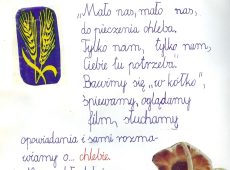 „Mało nas, mało nas,
do pieczenia chleba,
Tylko nam, tylko nam,
Ciebie tu potrzeba”.
Bawimy się „w kółko”,
śpiewamy, oglądamy
film, słuchamy
opowiadania i sami rozma-
wiamy o... chlebie.